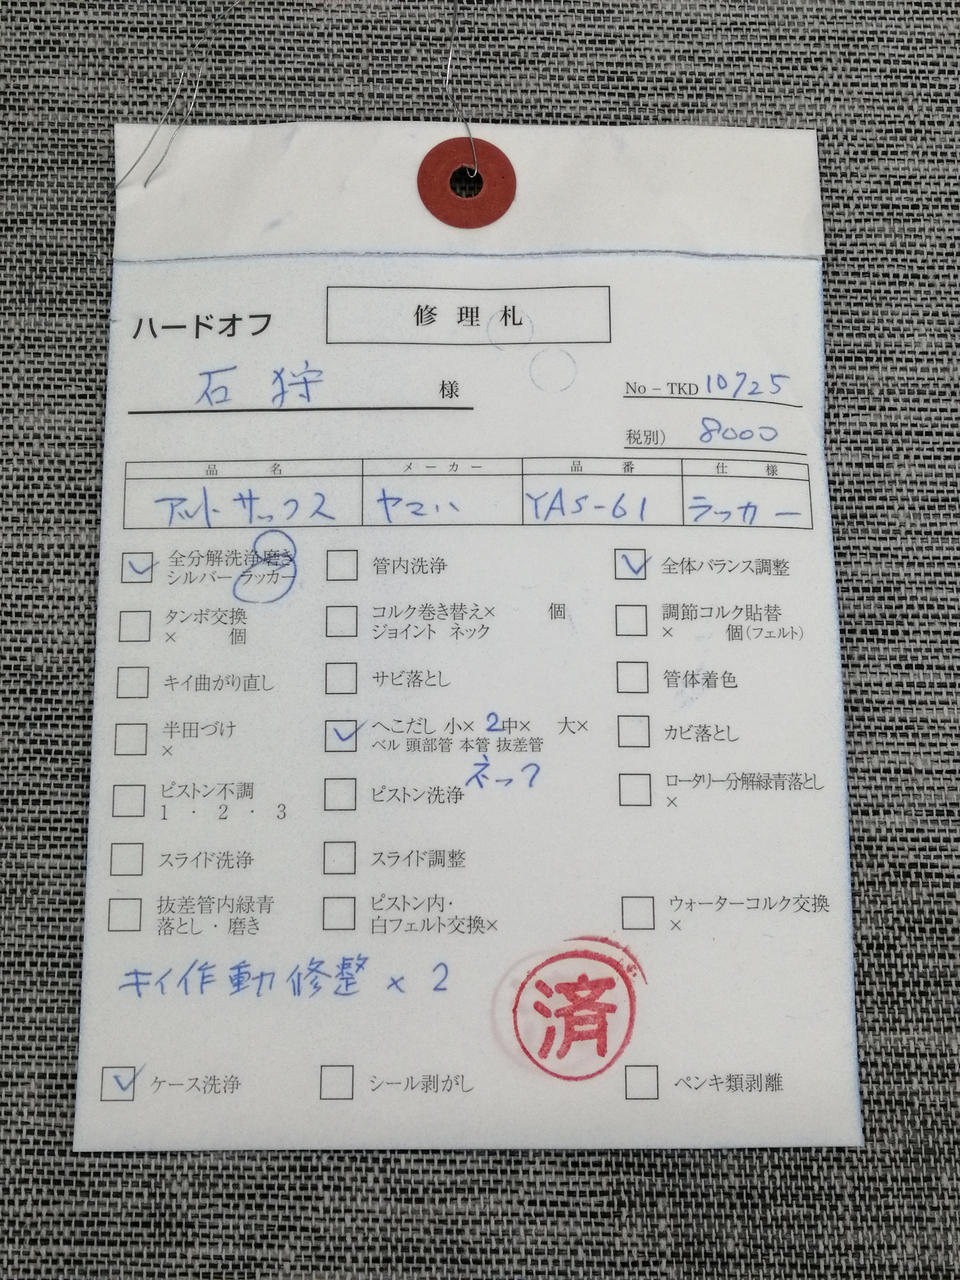 ハードオフ
修理札
石狩 様
No－TKD 10725
税別） 8000
品名 メーカー 品番 仕様
アルトサックス ヤマハ YAS-61 ラッカー
全分解洗浄磨き
シルバー ラッカー
管内洗浄
全体バランス調整
タンポ交換
× 個
コルク巻き替え× 個
ジョイント ネック
調節コルク貼替
× 個（フェルト）
キイ曲がり直し
サビ落とし
管体着色
半田づけ
×
へこだし 小× 2 中× 大×
ベル 頭部管 本管 抜差管
ネック
カビ落とし
ピストン不調
1 ・ 2 ・ 3
ピストン洗浄
ロータリー分解緑青落とし
×
スライド洗浄
スライド調整
抜差管内緑青
落とし・磨き
ピストン内・
白フェルト交換×
ウォーターコルク交換
×
キイ作動修整 × 2
済
ケース洗浄
シール剥がし
ペンキ類剥離